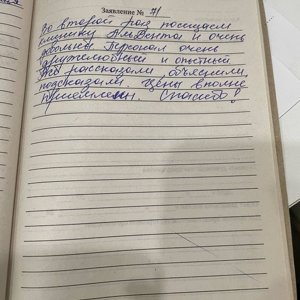 Заявление № 71
Во второй раз посещаем
клинику АлмДента и очень
довольны. Персонал очень
дружелюбный и опытный
Всё рассказали, объяснили,
подсказали. Цены вполне
приемлемы. Спасибо!